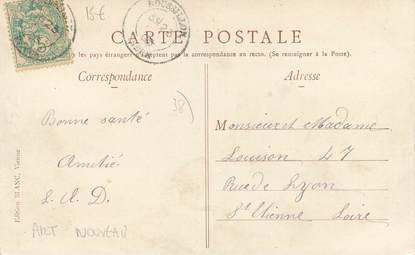 15€
ROUSSILLON
CARTE POSTALE
les pays étrangers n'acceptent pas la correspondance au recto. (Se renseigner à la Poste).
Correspondance
Adresse
38)
Bonne santé
Amitié
L. A. D.
ART NOUVEAU
Monsieur et Madame
Louison 47
Rue de Lyon
St Etienne Loire
Edition BLANC, Vienne